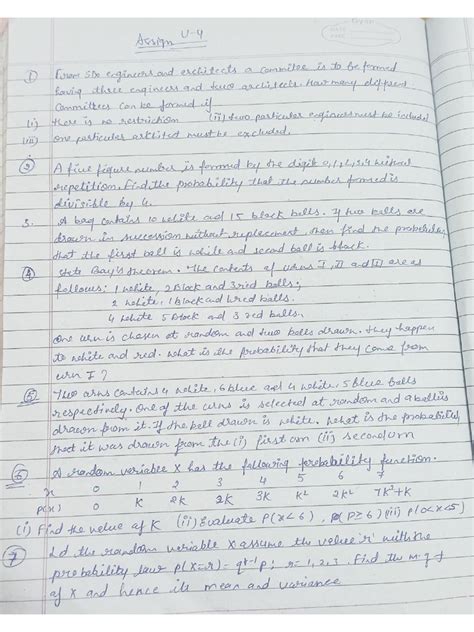 Assign U-4
① From six engineers and architects a commitee is to be formed
having three engineers and two architects. How many different
Committees can be formed if
(i) there is no restriction (ii) two particular engineers must be included
(iii) one particular architect must be excluded.
② A five figure number is formed by the digit 0,1,2,3,4 without
repetition. Find the probability that the number formed is
divisible by 4.
3. A bag contains 10 white and 15 black balls. If two balls are
drawn in succession without replacement, then find the probability
that the first ball is white and second ball is black.
④ State Bay's theorem. The contents of urns I, II and III are as
follows: 1 white, 2 black and 3 red balls;
2 white, 1 black and 1 red balls.
4 white 5 black and 3 red balls.
One urn is chosen at random and two balls drawn. They happen
to white and red. What is the probability that they come from
urn I?
⑤ Two urns contains 4 white, 6 blue and 4 white, 5 blue balls
respectively. One of the urns is selected at random and a ball is
drawn from it. If the ball drawn is white. What is the probability
that it was drawn from the (i) first urn (ii) second urn
⑥ A random variable X has the following probability function.
x 0 1 2 3 4 5 6 7
P(x) 0 K 2K 2K 3K K² 2K² 7K²+K
(i) Find the value of K (ii) Evaluate P(X<6), P(X≥6) (iii) P(0<X<5)
⑦ Let the random variable X assume the value 'r' with the
probability law P(X=r) = qʳ⁻¹p; r=1,2,3. Find the m.g.f
of X and hence its mean and variance